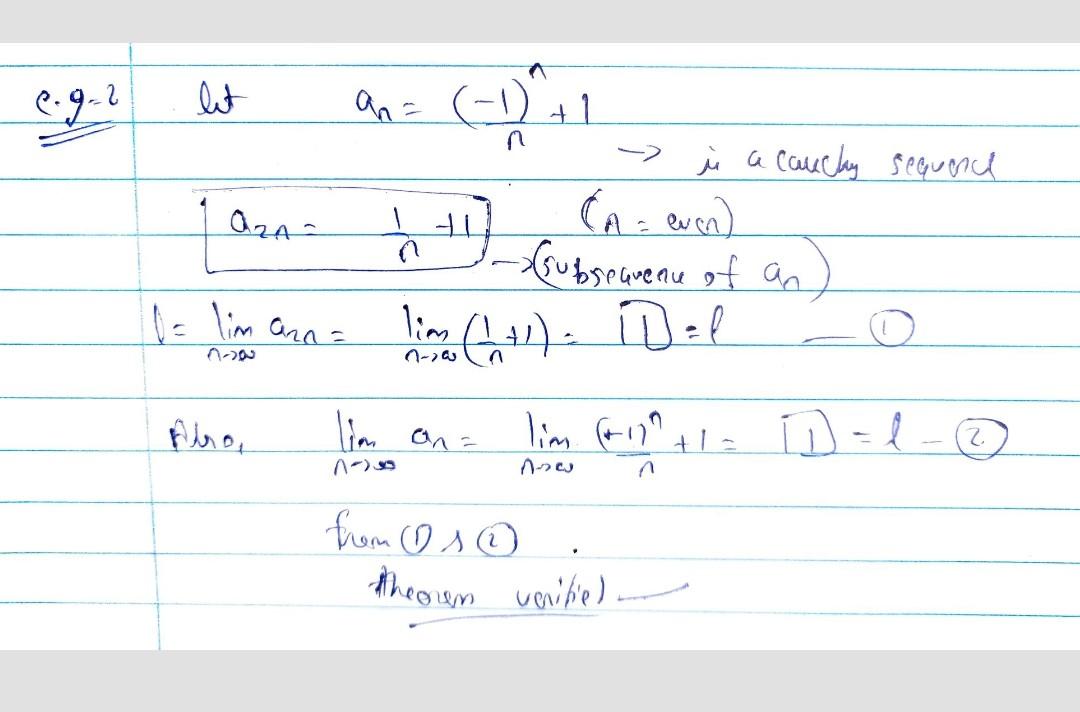 e.g-2 let an = (-1)^n/n + 1
→ is a cauchy sequence
a2n = 1/n + 1 (n = even)
→ (subsequence of an)
l = lim n→∞ a2n = lim n→∞ (1/n + 1) = 1 = l — ①
Also, lim n→∞ an = lim n→∞ (-1)^n/n + 1 = 1 = l – ②
from ① & ②
theorem verified